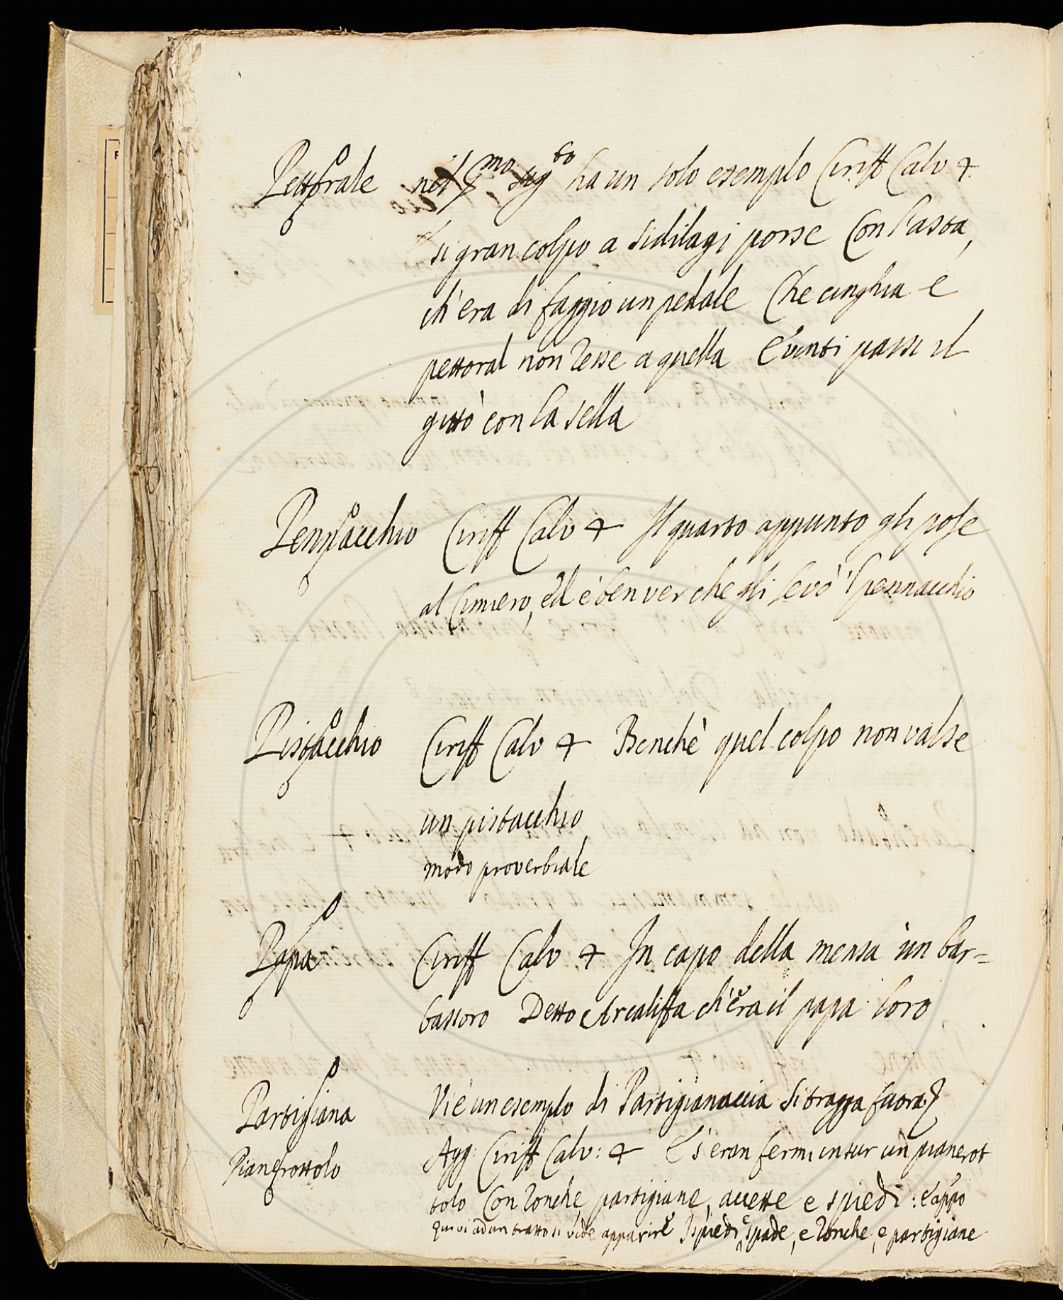 Pettorale nel pmo sigto ha un solo esemplo Ciriff Calv 4
si gran colpo a Sidilagi porse Con l'asta,
ch'era di faggio un pedale Che cinghia e
pettoral non resse a quella E venti passi il
gittò con la sella
Pennacchio Ciriff Calv 4 Il quarto appunto gli pose
al Cimiero, ed è ben ver che gli levò 'l pennacchio
Pistacchio Ciriff Calv 4 Benchè quel colpo non valse
un pistacchio
modo proverbiale
Papa Ciriff Calv 4 In capo della mensa un bar=
bassoro Detto Arcaliffa ch'era il papa loro
Partigiana Vi è un esemplo di Partigianaccia si tragga fuora
Piangrottolo Agg: Ciriff Calv: 4 E s'eran fermi intur un pianerot
tolo Con ronche, partigiane, accette e spiedi: e appo
Quivi ad un tratto si vide apparire Spiedi, spade, e ronche, e partigiane